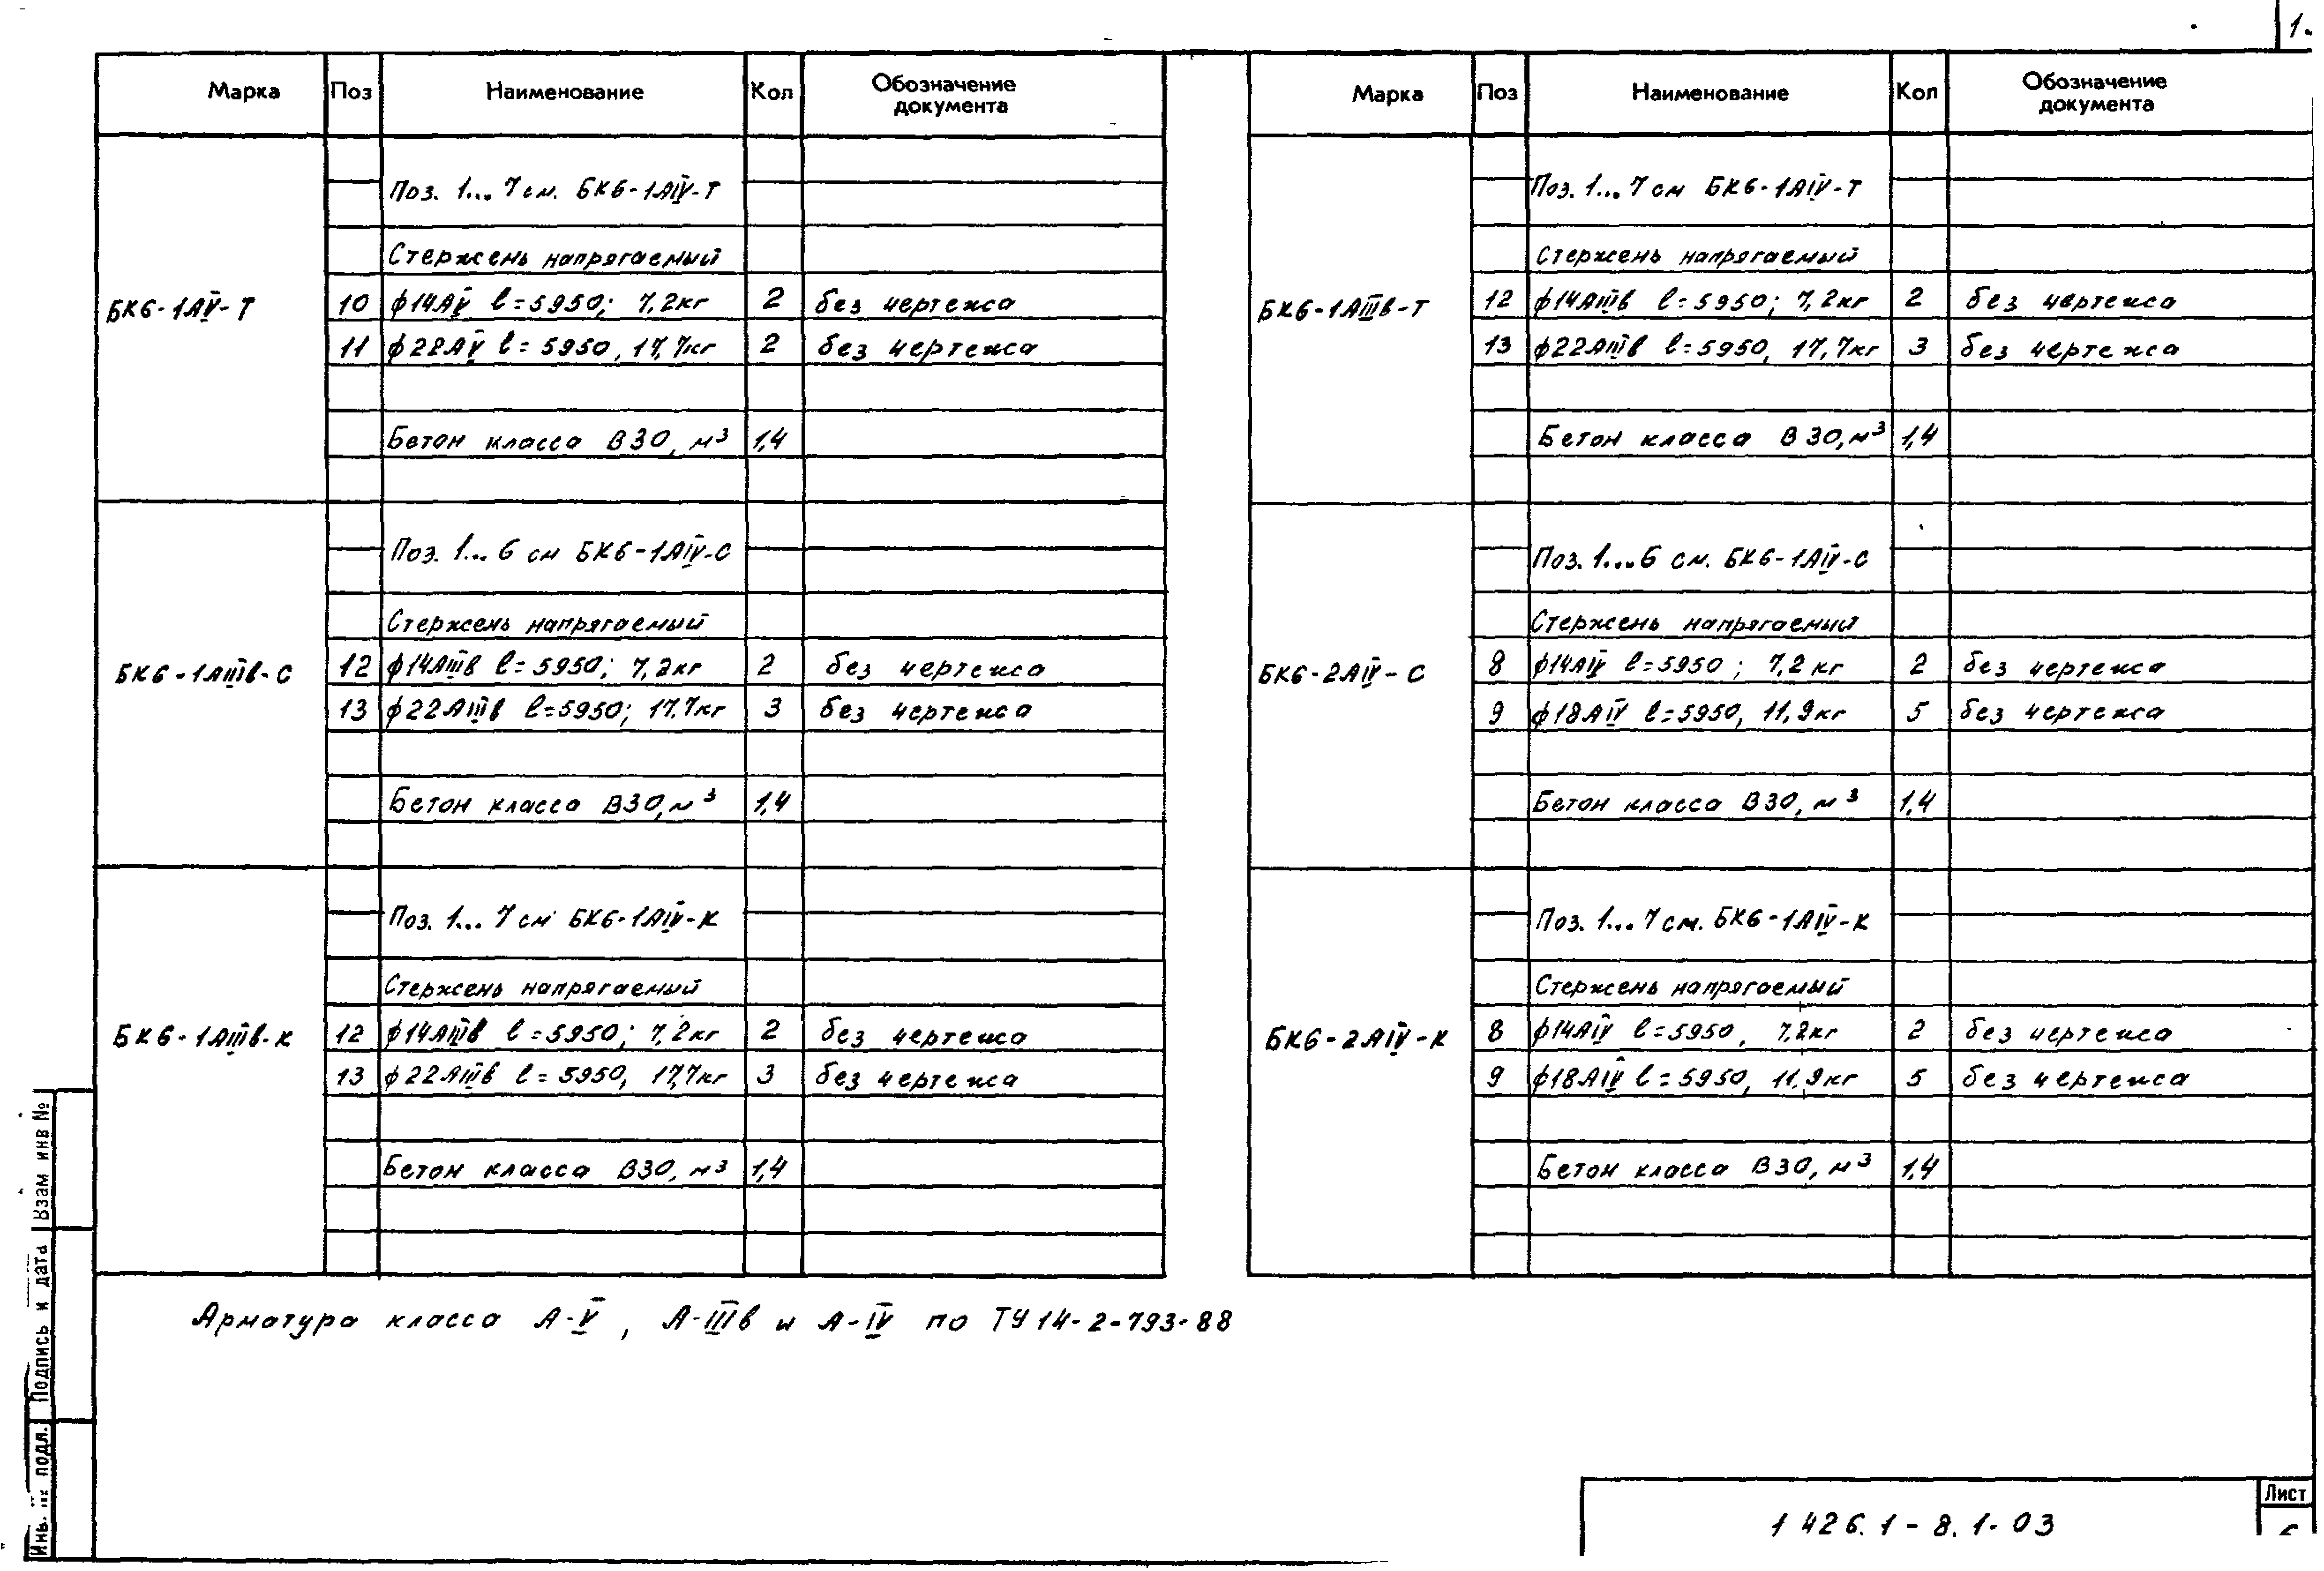 1.
Марка Поз Наименование Кол Обозначение документа
Поз. 1... 7 см. БК6-1АIV-Т
Стержень напрягаемый
БК6-1АV-Т
10 ϕ14АV ℓ=5950; 7,2кг 2 без чертежа
11 ϕ22АV ℓ=5950, 17,7кг 2 без чертежа
Бетон класса В30, м³ 1,4
Поз. 1... 6 см БК6-1АIV-С
Стержень напрягаемый
БК6-1АIIIв-С
12 ϕ14АIIIв ℓ=5950; 7,2кг 2 без чертежа
13 ϕ22АIIIв ℓ=5950; 17.7кг 3 без чертежа
Бетон класса В30, м³ 1,4
Поз. 1... 7 см БК6-1АIV-К
Стержень напрягаемый
БК6-1АIIIв-К
12 ϕ14АIIIв ℓ=5950; 7,2кг 2 без чертежа
13 ϕ22АIIIв ℓ=5950, 17,7кг 3 без чертежа
Бетон класса В30, м³ 1,4
Марка Поз Наименование Кол Обозначение документа
Поз. 1... 7 см БК6-1АIV-Т
Стержень напрягаемый
БК6-1АIIIв-Т
12 ϕ14АIIIв ℓ=5950; 7,2кг 2 без чертежа
13 ϕ22АIIIв ℓ=5950, 17,7кг 3 без чертежа
Бетон класса В30, м³ 1,4
Поз. 1... 6 см. БК6-1АIV-С
Стержень напрягаемый
БК6-2АIV-С
8 ϕ14АIV ℓ=5950; 7,2 кг 2 без чертежа
9 ϕ18АIV ℓ=5950, 11,9кг 5 без чертежа
Бетон класса В30, м³ 1,4
Поз. 1... 7 см. БК6-1АIV-К
Стержень напрягаемый
БК6-2АIV-К
8 ϕ14АIV ℓ=5950, 7,2кг 2 без чертежа
9 ϕ18АIV ℓ=5950, 11,9кг 5 без чертежа
Бетон класса В30, м³ 1,4
Арматура класса А-V, А-IIIв и А-IV по ТУ 14-2-793-88
Взам инв №
Подпись и дата
Инв. подл.
1 426.1-8.1-03
Лист